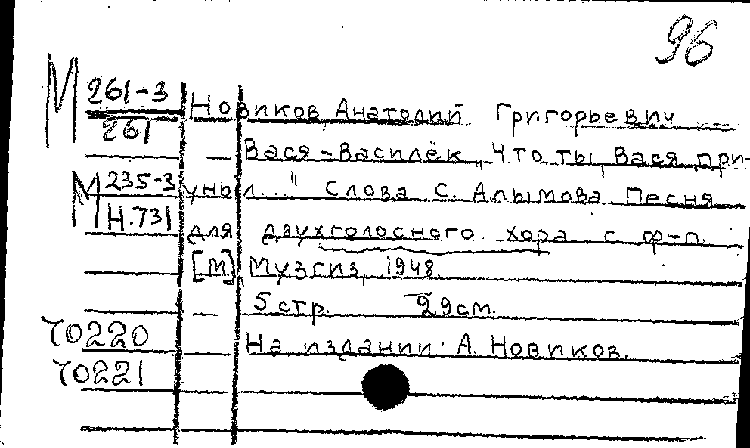 96
М 261-3
261
Новиков Анатолий Григорьевич
Вася-Василёк „Что ты, Вася при-
М 235-3
Н.731
уныл..." Слова С. Алымова. Песня
для двухголосного хора с ф-п.
[М] Музгиз, 1948.
5 стр. 29 см.
70220
На издании: А. Новиков.
70221